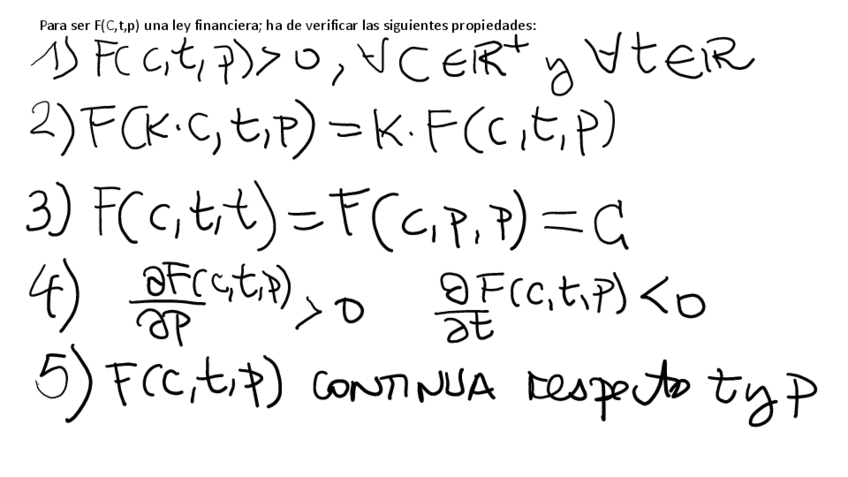 Para ser F(C,t,p) una ley financiera; ha de verificar las siguientes propiedades:
1) F(C,t,p)>0, ∀C∈R⁺ y ∀t∈R
2) F(K·C,t,p)=K·F(C,t,p)
3) F(C,t,t)=F(C,p,p)=C
4) ∂F(C,t,p)/∂p >0 ∂F(C,t,p)/∂t <0
5) F(C,t,p) CONTINUA respecto t y p